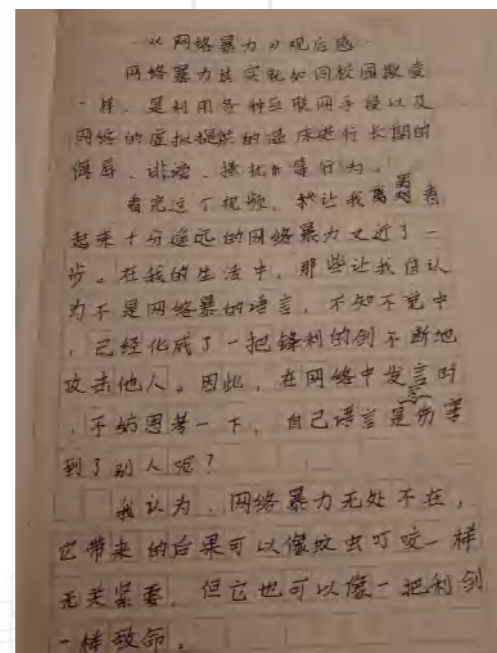 《网络暴力》观后感
网络暴力其实就如同校园欺凌
一样，是利用各种互联网手段以及
网络的虚拟提供的温床进行长期的
侮辱、诽谤、搔扰等行为。
看完这个视频，让我离看
起来十分遥远的网络暴力又近了一
步。在我的生活中，那些让我自认
为不是网络暴的语言，不知不觉中
，已经化成了一把锋利的剑不断地
攻击他人。因此，在网络中发言时
，不妨思考一下，自己语言是否伤害
到了别人呢？
我认为，网络暴力无处不在，
它带来的后果可以像蚊虫叮咬一样
无关紧要，但它也可以像一把利剑
一样致命，